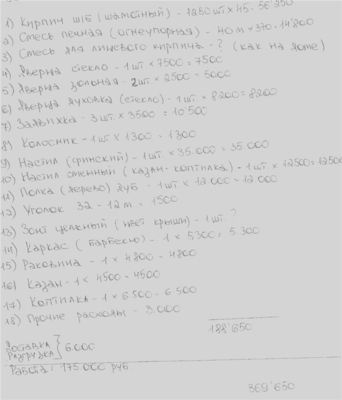 1) Кирпич ШБ (шамотный) - 1250 шт × 45 = 56'250
2) Смесь печная (огнеупорная) - 40 м × 370 = 14'800
3) Смесь для лицевого кирпича - ? (как на фото)
4) Дверца стекло - 1 шт × 7500 = 7500
5) Дверца зольная - 2 шт × 2500 = 5000
6) Дверца духовка (стекло) - 1 шт × 8200 = 8200
7) Задвижка - 3 шт × 3500 = 10'500
8) Колосник - 1 шт × 1300 = 1300
9) Настил (финский) - 1 шт × 35.000 = 35.000
10) Настил сменный (казан-коптилка) - 1 шт × 12500 = 12500
11) Полка (дерево) дуб - 1 шт × 12.000 = 12.000
12) Уголок 32 - 12 м = 1500
13) Зонт (цвет крыши) - 1 шт ?
14) Каркас (барбекю) - 1 × 5300 = 5.300
15) Раковина - 1 × 4800 - 4800
16) Казан - 1 × 4500 = 4500
17) Коптилка - 1 × 6.500 - 6.500
18) Прочие расходы - 3.000
188'650
Доставка
Разгрузка } 6.000
Работа: 175.000 руб
369'650